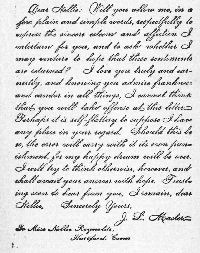 Dear Nellie: Will you allow me, in a
few plain and simple words, respectfully to
express the sincere esteem and affection I
entertain for you, and to ask whether I
may venture to hope that these sentiments
are returned? I love you truly and ear-
nestly, and knowing you admire frankness
and candor in all things, I cannot think
that you will take offense at this letter.
Perhaps it is self-flattery to suppose I have
any place in your regard. Should this be
so, the error will carry with it its own pun-
ishment, for my happy dream will be over.
I will try to think otherwise, however, and
shall await your answer with hope. Trust-
ing soon to hear from you, I remain, dear
Nellie, Sincerely Yours,
J. L.
To Miss Nellie Reynolds,
Hartford, Conn